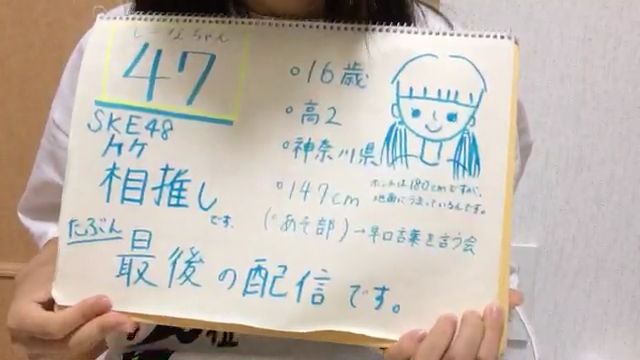 しーなちゃん
47
SKE48
相推し
です.
たぶん
最後の配信です。
○16歳
○高2
○神奈川県
○147cm
ホントは180cmですが、
地面にうまっているんです。
(○あそ部)→早口言葉を言う会